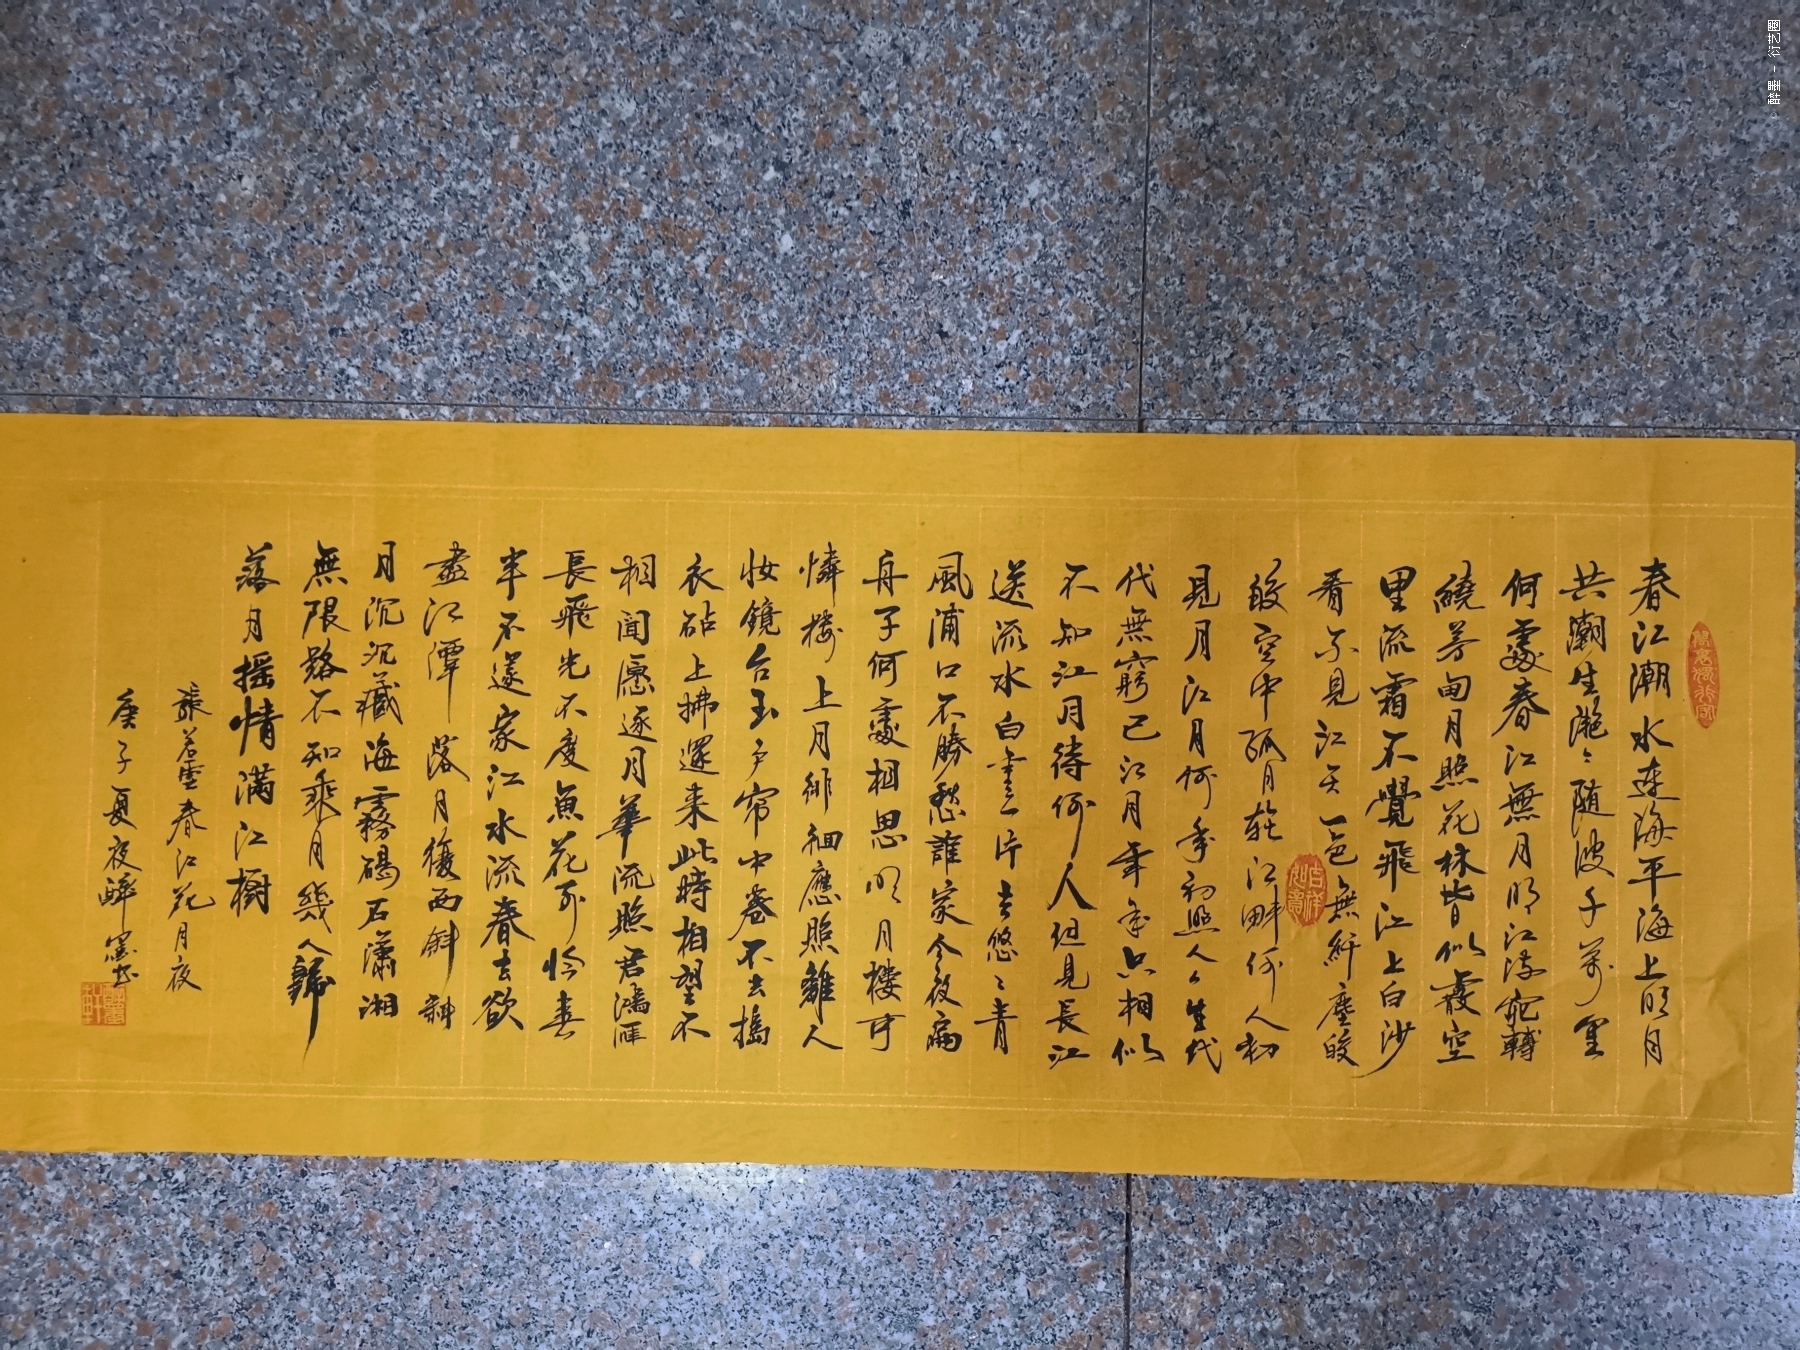 春江潮水连海平海上明月
共潮生滟〻随波千万里
何處春江無月明江流宛轉
繞芳甸月照花林皆似霰空
里流霜不覺飛江上白沙
看不見江天一色無纤塵皎
皎空中孤月轮江畔何人初
見月江月何年初照人人生代
代無窮已江月年年只相似
不知江月待何人但見長江
送流水白雲一片去悠〻青
楓浦口不勝愁誰家今夜扁
舟子何處相思明月楼可
憐楼上月徘徊應照離人
妆鏡台玉户帘中卷不去搗
衣砧上拂還来此時相望不
相聞愿逐月華流照君鴻雁
長飛光不度魚花可怜春
半不還家江水流春去欲
盡江潭落月復西斜斜
月沉沉藏海霧碣石瀟湘
無限路不知乘月幾人歸
落月摇情满江樹
張若虚春江花月夜
庚子夏夜醉墨书
吉祥如意
醉墨 - 衍艺圈